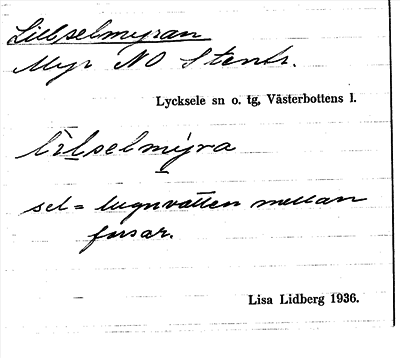 Lillselmyran
Myr NO Stentr.
Lycksele sn o. tg, Västerbottens l.
lìlselmỳra
sel = lugnvatten mellan
forsar.
Lisa Lidberg 1936.